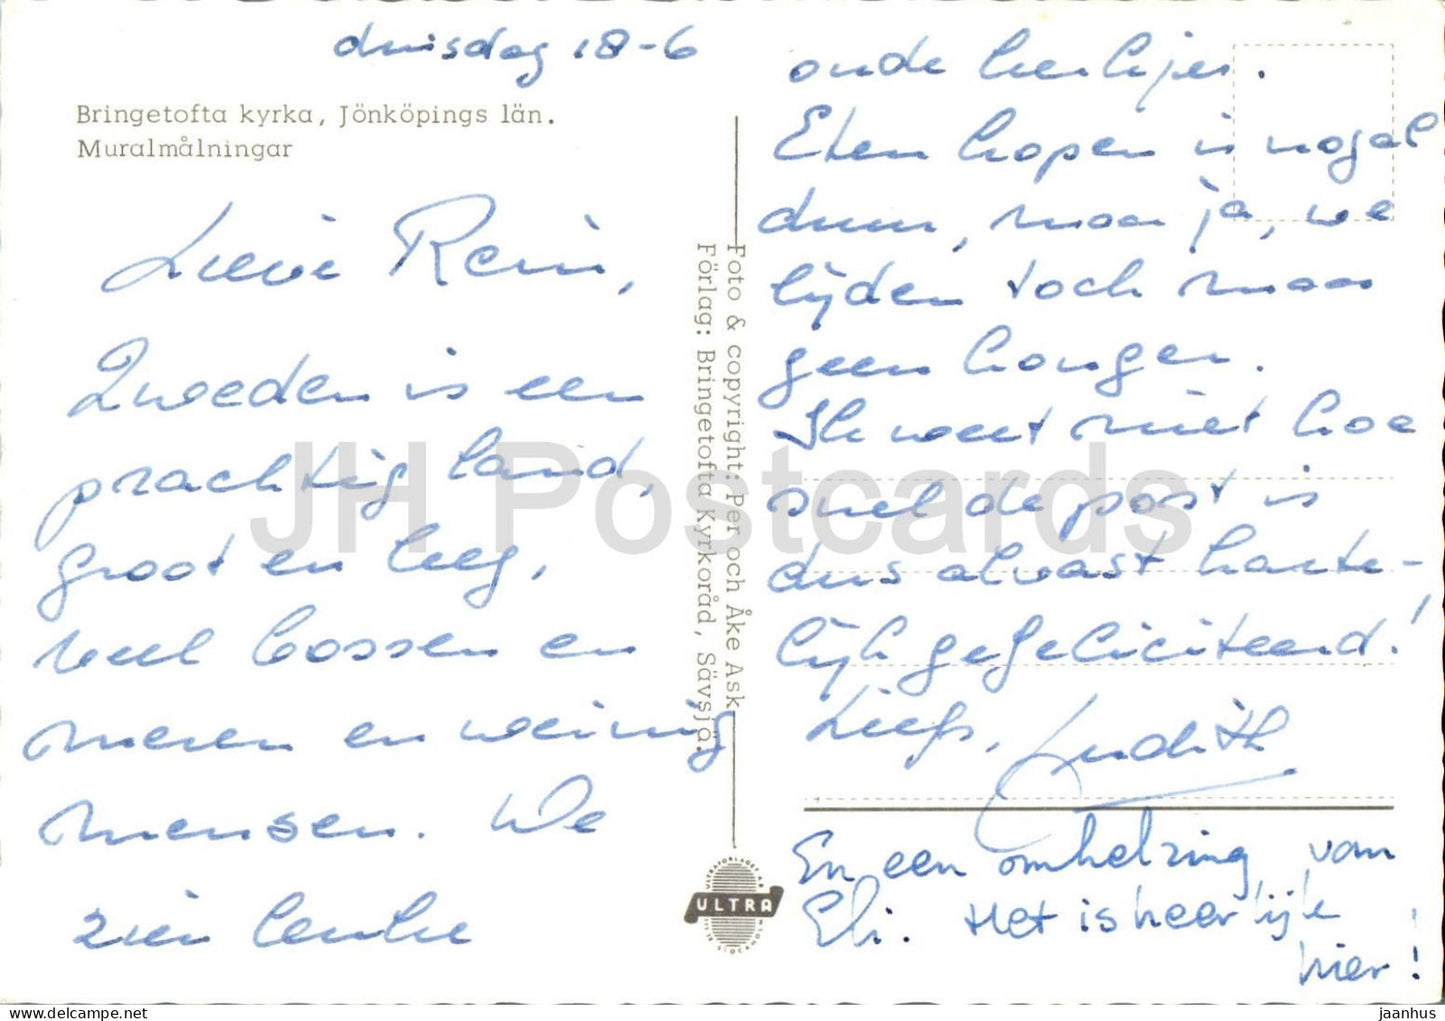 dinsdag 18-6
Bringetofta kyrka, Jönköpings län.
Muralmålningar
Lieve Rein,
Zweden is een
prachtig land,
groot en leeg,
veel bossen en
meren en weinig
mensen. We
zien leuke
Foto & copyright: Per och Åke Ask
Förlag: Bringetofta Kyrkoråd, Sävsjö.
ULTRA
oude kerkjes.
Eten kopen is nogal
duur, maar ja, we
lijden toch maar
geen honger.
Ik weet niet hoe
snel de post is
dus alvast harte-
lijk gefeliciteerd!
Liefs, Judith
En een omhelzing van
Eli. Het is heerlijk
hier!
JH Postcards
jaanhus